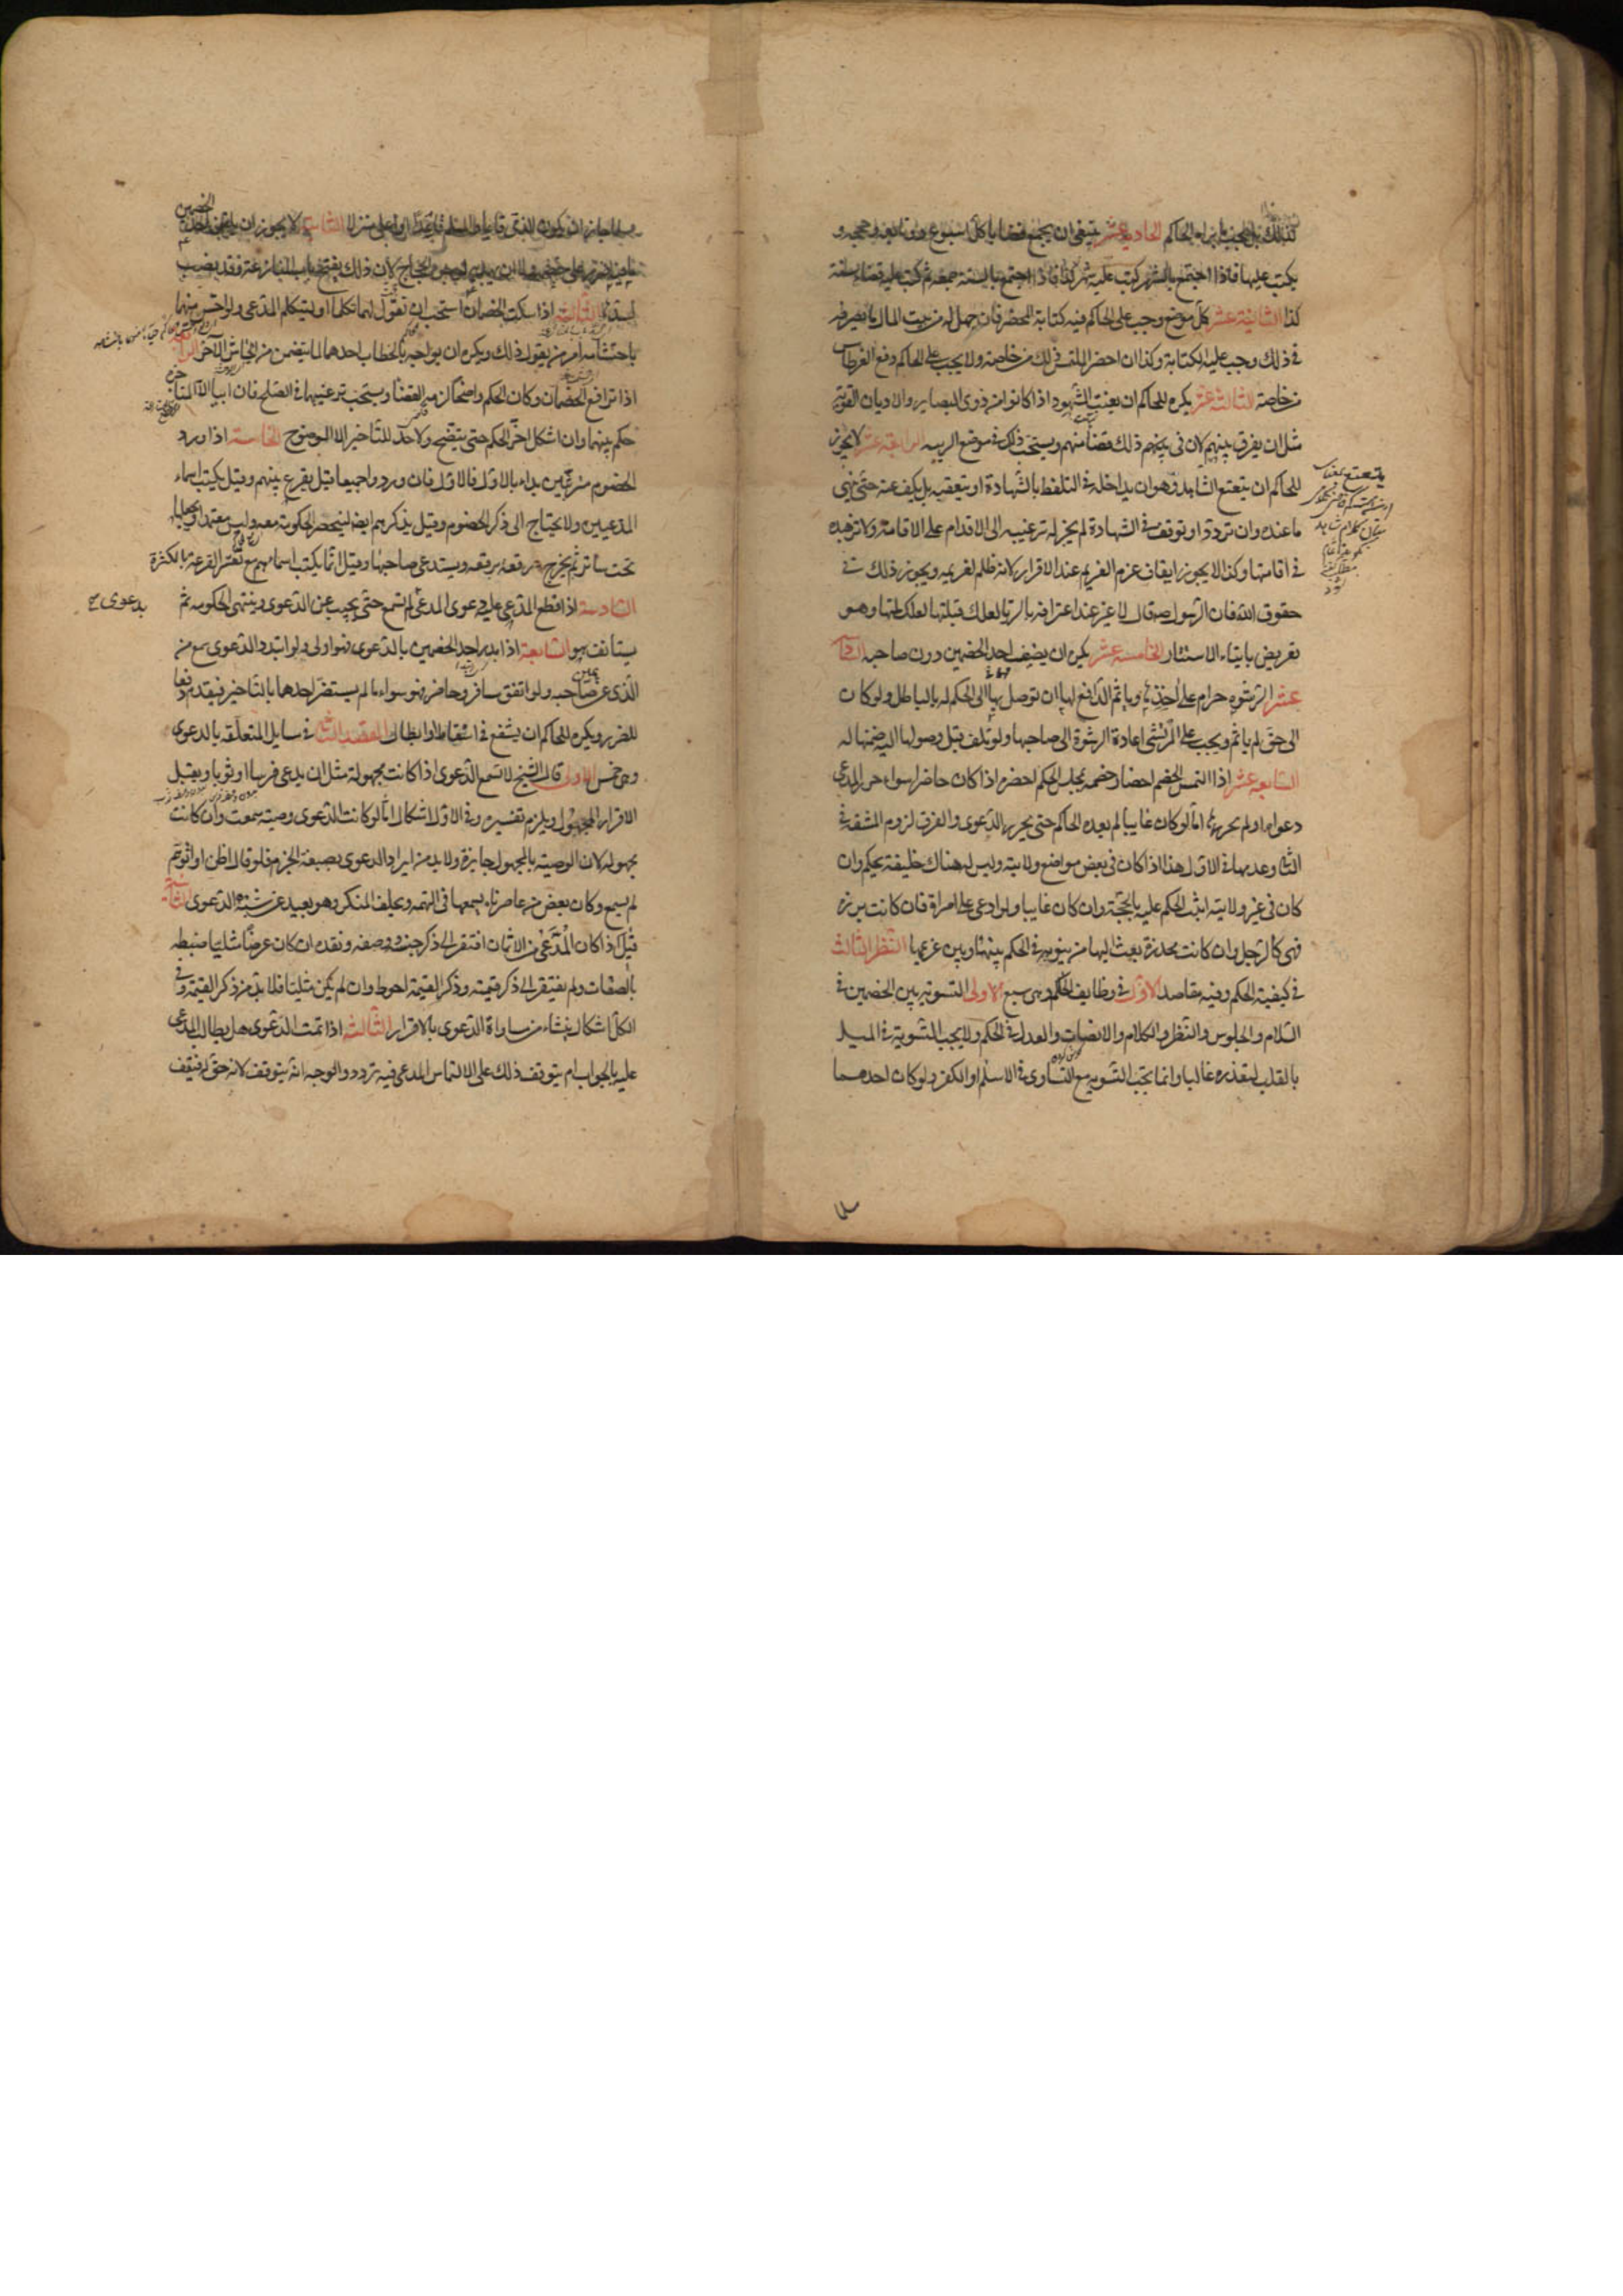 كذلك الحاكم الحادية عشر ينبغي ان يجمع قضايا كل اسبوع ووثائقه وحججه و
يكتب عليها فاذا اجتمع بالشهر كتب عليه شهر كذا فاذا اجتمع بالسنة جمعه ثم كتب عليه قضاء سنة
كذا الثانية عشر كل موضع وجب على الحاكم فيه كتابة المحضر فان حمل له من بيت المال ما يصرفه
في ذلك وجب عليه الكتابة وكذا ان احضر الملتمس ذلك من خاصته ولا يجب على الحاكم دفع القرطاس
من خاصته الثالثة عشر يكره للحاكم ان يعنت الشهود اذا كانوا من ذوى البصاير والاديان القوية
مثل ان يفرق بينهم لان في ذلك غضا منهم ويستحب ذلك في موضع الريبه الرابعة عشر لا يجوز
للحاكم ان يتعتع الشاهد وهو ان يداخله في التلفظ بالشهادة او يتعقبه بل يكف عنه حتى ينهى
ما عنده وان تردد او توقف في الشهادة لم يجز له ترغيبه الى الاقدام على الاقامة ولا تزهيده
في اقامتها وكذا لا يجوز ايقاف عزم الغريم عند الاقرار لانه ظلم لغريمه ويجوز ذلك في
حقوق الله فان الرسول ص قال لماعز عند اعترافه بالزنا لعلك قبلتها لعلك لمستها وهو
تعريض بايثار الاستتار الخامسة عشر يكره ان يضيف احد الخصمين دون صاحبه السادسة
عشر الرشوه حرام على اخذها وياثم الدافع لها ان توصل بها الى الحكم له بالباطل ولو كان
الى حق لم ياثم ويجب على المرتشي اعادة الرشوة الى صاحبها ولو تلف قبل وصولها اليه ضمنها له
السابعه عشر اذا التمس الخصم احضار خصمه مجلس الحكم احضره اذا كان حاضرا سواء حرر المدعى
دعواه او لم يحررها اما لو كان غايبا لم يعده الحاكم حتى يحرر الدعوى والفرق لزوم المشقة في
الثاني وعدمها في الاول هذا اذا كان في بعض مواضع ولايته وليس له هناك خليفة يحكم وان
كان في غير ولايته اثبت الحكم عليه بالحجة وان كان غايبا ولو ادعى على امراة فان كانت برزه
فهى كالرجل وان كانت مخدرة بعث اليها من ينوبه في الحكم بينها وبين غريمها النظر الثالث
في كيفية الحكم وفيه مقاصد الاول في وظايف الحاكم وهى سبع الاولى التسوية بين الخصمين في
السلام والجلوس والنظر والكلام والانصات والعدل في الحكم ولا يجب التسوية في الميل
بالقلب لتعذره غالبا وانما تجب التسوية مع التساوى في الاسلام او الكفر ولو كان احدهما
مسلما جاز ان يكون الذمى قايما والمسلم قاعدا او اعلى منزلا الثانية لا يجوز ان يلقن احد الخصمين
ما فيه ضرر على خصمه ولا ان يهديه لوجوه الحجاج لان ذلك يفتح باب المنازعة وقد نصب
لسدها الثالثة اذا سكت الخصمان استحب ان يقول لهما تكلما او ليتكلم المدعى ولو احس منهما
باحتشامه امر من يقول ذلك ويكره ان يواجه بالخطاب احدهما لما يتضمن من ايحاش الآخر الرابعة
اذا ترافع الخصمان وكان الحكم واضحا لزمه القضاء ويستحب ترغيبهما في الصلح فان ابيا الا المناجزه
حكم بينهما وان اشكل اخر الحكم حتى يتضح ولا حد للتاخير الا الوضوح الخامسة اذا ورد
الخصوم مترتبين بداء بالاول فالاول فان وردوا جميعا قيل يقرع بينهم وقيل يكتب اسماء
المدعيين ولا يحتاج الى ذكر الخصوم وقيل يذكرهم ايضا ليحضر الحكومة معه وليس معتمدا ويجعلها
تحت ساتر ثم يخرج رقعه رقعه ويستدعى صاحبها وقيل انما يكتب اسمائهم مع تعسر القرعة بالكثرة
السادسة اذا قطع المدعى عليه دعوى المدعى بدعوى لم تسمع حتى يجيب عن الدعوى وينتهى الحكومه ثم
يستانف هو السابعة اذا بدر احد الخصمين بالدعوى فهو اولى ولو ابتدرا الدعوى سمع من
الذى عن يمين صاحبه ولو اتفق مسافر وحاضر فهو سواء ما لم يستضر احدهما بالتاخير فيقدم دفعا
للضرر ويكره للحاكم ان يشفع في اسقاط او ابطال المقصد الثاني في مسايل المتعلقه بالدعوى
وهى خمس الاولى قال الشيخ لا تسمع الدعوى اذا كانت مجهولة مثل ان يدعى فرسا او ثوبا ويقبل
الاقرار بالمجهول ويلزم تفسيره وفي الاول اشكال اما لو كانت الدعوى وصيته سمعت وان كانت
مجهوله لان الوصيه بالمجهول جايزة ولا بد من ايراد الدعوى بصيغة الجزم فلو قال اظن او اتوهم
لم تسمع وكان بعض من عاصرناه يسمعها في التهمه ويحلف المنكر وهو بعيد عن شبه الدعوى الثانية
قيل اذا كان المدعى من الاثمان افتقر الى ذكر جنسه ووصفه ونقده وان كان عرضا مثليا ضبطه
بالصفات ولم يفتقر الى ذكر قيمته وذكر القيمة احوط وان لم يكن مثليا فلا بد من ذكر القيمة وفي
الكل اشكال ينشاء من مساواة الدعوى بالاقرار الثالثة اذا تمت الدعوى هل يطالب المدعى
عليه بالجواب ام يتوقف ذلك على التماس المدعى فيه تردد والوجه انه يتوقف لانه حق له فيقف